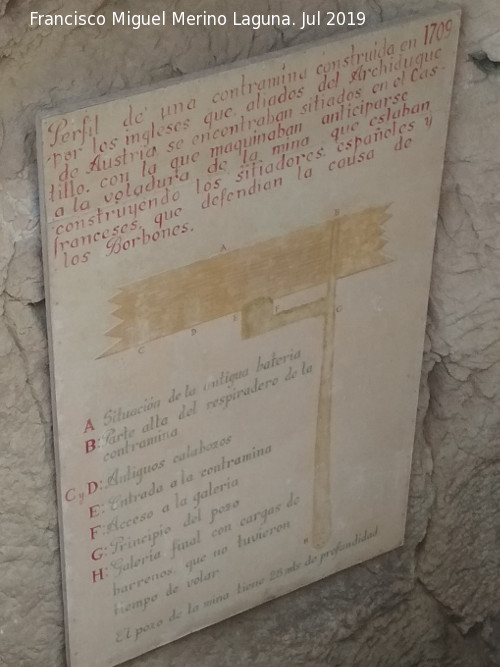 Francisco Miguel Merino Laguna. Jul 2019
Perfil de una contramina construida en 1709
por los ingleses que, aliados del Archiduque
de Austria, se encontraban sitiados en el Cas-
tillo, con la que maquinaban anticiparse
a la voladura de la mina que estaban
construyendo los sitiadores, españoles y
franceses, que defendian la causa de
los Borbones.
B
A
F
G
E
C
D
H
A Situación de la antigua bateria
B: Parte alta del respiradero de la
contramina
C y D: Antiguos calabozos
E: Entrada a la contramina
F: Acceso a la galeria
G: Principio del pozo
H: Galeria final con cargas de
barrenos, que no tuvieron
tiempo de volar
El pozo de la mina tiene 28 mts de profundidad